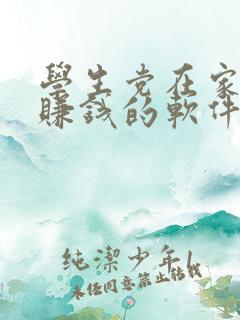 學生党在家
賺錢的軟件
純潔少年l
未经同意禁止转载